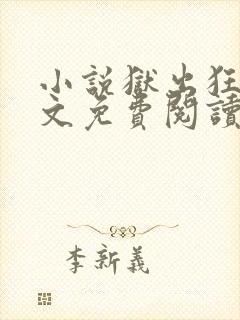 小說獄出狂
文免費閱讀
李新義